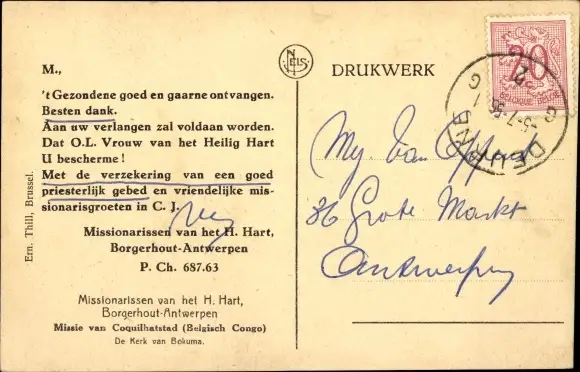 NELS
DRUKWERK
20
BELGIQUE-BELGIE
DEURNE
5-7-56
M.,
't Gezondene goed en gaarne ontvangen.
Besten dank.
Aan uw verlangen zal voldaan worden.
Dat O.L. Vrouw van het Heilig Hart
U bescherme !
Met de verzekering van een goed
priesterlijk gebed en vriendelijke mis-
sionarisgroeten in C. J.
Missionarissen van het H. Hart,
Borgerhout-Antwerpen
P. Ch. 687.63
Missionarissen van het H. Hart,
Borgerhout-Antwerpen
Missie van Coquilhatstad (Belgisch Congo)
De Kerk van Bokuma.
Ern. Thill, Brussel.
Mej Van
36 Grote Markt
Antwerpen